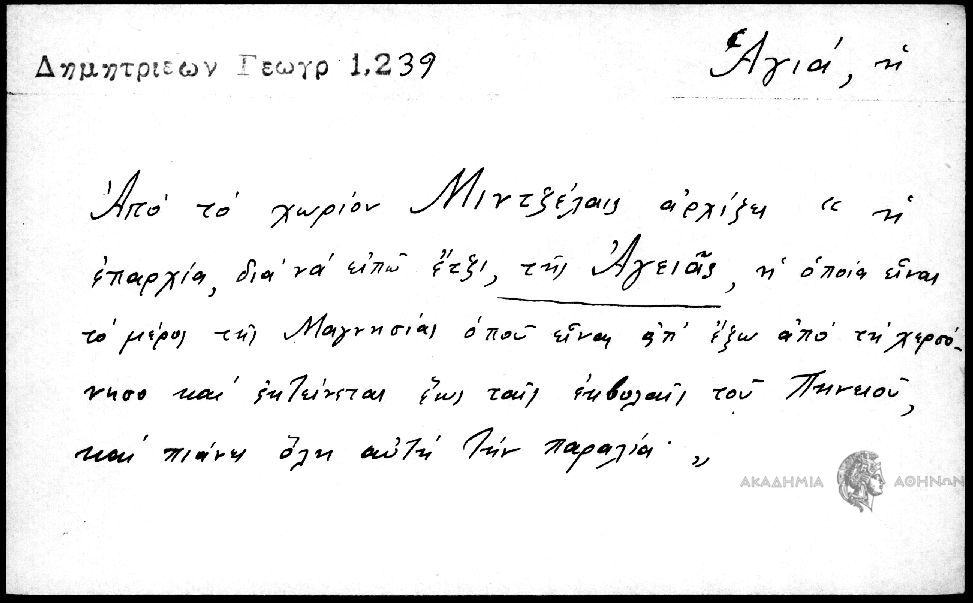 Δημητριεων Γεωγρ 1,239
Ἁγιά, ἡ
Ἀπό τό χωρίον Μιντζέλαις ἀρχίζει “ ἡ
ἐπαρχία, διά νά εἰπῶ ἔτζι, τῆς Ἁγειᾶς, ἡ ὁποία εἶναι
τό μέρος τῆς Μαγνησίας ὁποῦ εἶναι ἀπ' ἔξω ἀπό τή χερσό-
νησο καί ἐκτείνεται ἕως ταῖς ἐκβολαῖς τοῦ Πηνειοῦ,
καί πιάνει ὅλη αὐτή τήν παραλία „
ΑΚΑΔΗΜΙΑ ΑΘΗΝΩΝ